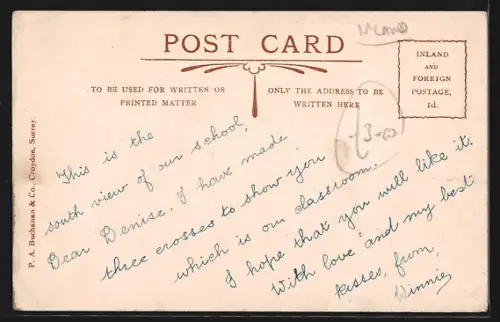 POST CARD
INLAND
AND
FOREIGN
POSTAGE,
1d.
TO BE USED FOR WRITTEN OR
PRINTED MATTER
ONLY THE ADDRESS TO BE
WRITTEN HERE
-3-00
P. A. Buchanan & Co., Croydon, Surrey.
This is the
south view of our school,
Dear Denise. I have made
three crosses to show you
which is our classroom.
I hope that you will like it.
With love and my best
kisses, from,
Winnie